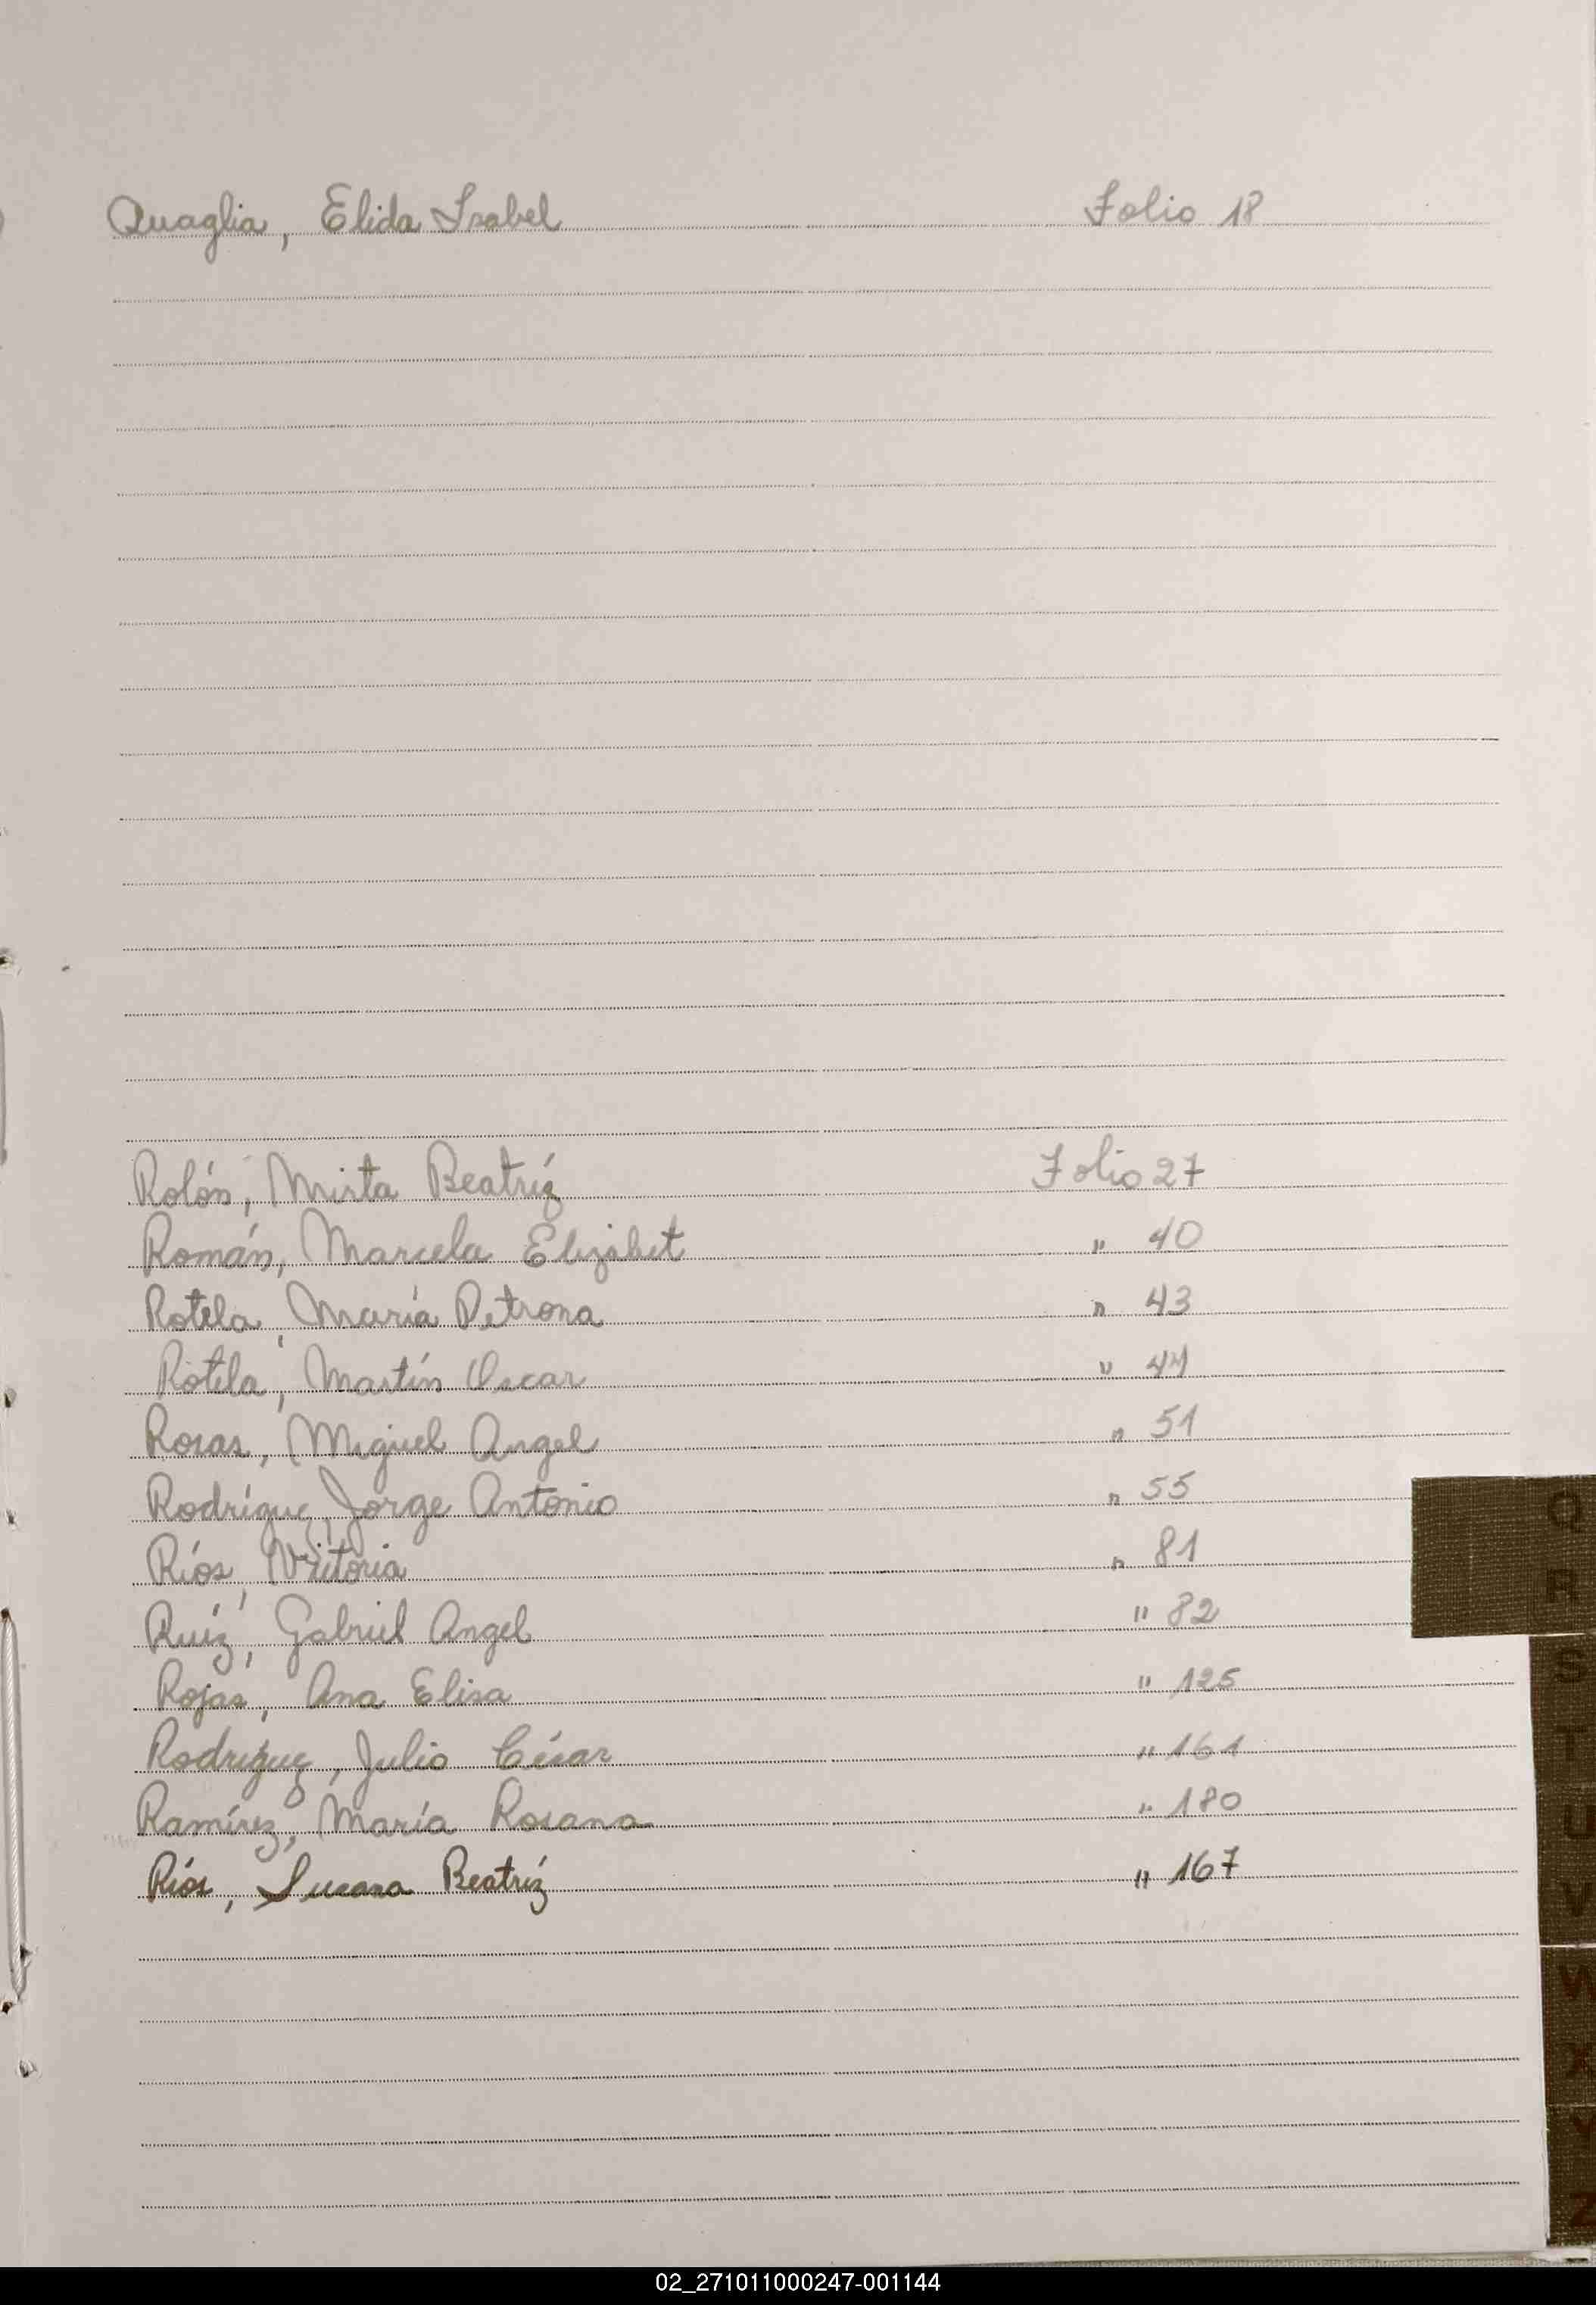 Quaglia, Elida Isabel Folio 18
Rolón, Mirta Beatríz Folio 27
Román, Marcela Elizabet " 40
Rotela, María Petrona " 43
Rotela, Martín Oscar " 44
Rosas, Miguel Angel " 51
Rodríguez, Jorge Antonio " 55
Ríos, Vritoria " 81
Ruíz, Gabriel Angel " 82
Rojas, Ana Elisa " 125
Rodríguez, Julio César " 161
Ramírez, María Rosana " 180
Ríos, Susana Beatríz " 167
Q
R
S
T
U
V
W
X
Y
Z
02_271011000247-001144